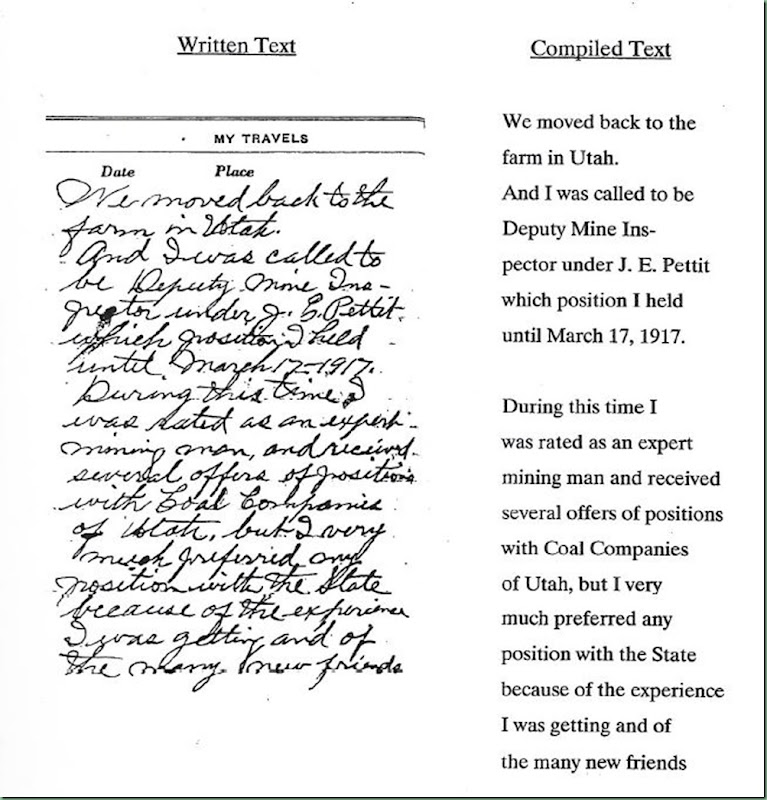 Written Text
MY TRAVELS
Date Place
We moved back to the
farm in Utah.
And I was called to
be Deputy Mine Ins-
pector under J. E. Pettit
which position I held
until March 17-1917.
During this time I
was rated as an expert
mining man, and received
several offers of positions
with Coal Companies
of Utah, but I very
much preferred
position with the State
because of the experience
I was getting and of
the many new friends
Compiled Text
We moved back to the
farm in Utah.
And I was called to be
Deputy Mine Ins-
pector under J. E. Pettit
which position I held
until March 17, 1917.
During this time I
was rated as an expert
mining man and received
several offers of positions
with Coal Companies
of Utah, but I very
much preferred any
position with the State
because of the experience
I was getting and of
the many new friends